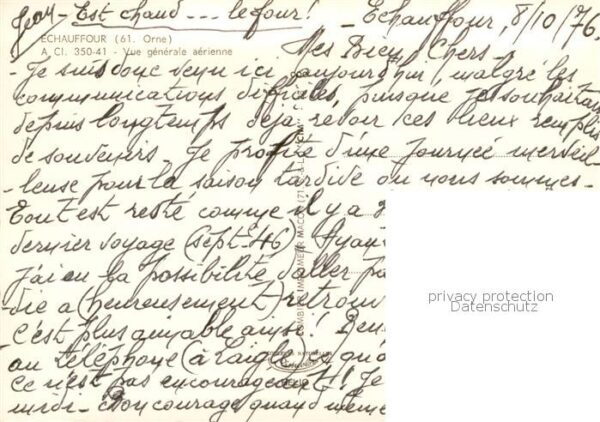 Jean - Est chaud --- le four!
Echauffour, 8/10/76
ECHAUFFOUR (61. Orne)
A. CI. 350-41 - Vue générale aérienne
Mes Bien Chers
- Je suis donc venu ici aujourd'hui, malgré les
communications difficiles, puisque je souhaitais
depuis longtemps déjà revoir ces lieux remplis
de souvenirs. Je profite d'une journée merveil-
-leuse pour la saison tardive où nous sommes-
Tout est resté comme il y a
dernier voyage (sept. 46) Ayan
j'ai eu la possibilité d'aller
die a (heureusement) retrouv
c'est plus aimable ainsi!
au téléphone (à Laigle) es qu'o
ce n'est pas encourageant! Je
midi - Bon courage quand même
COMBIER IMPRIMEUR MACON
privacy protection
Datenschutz